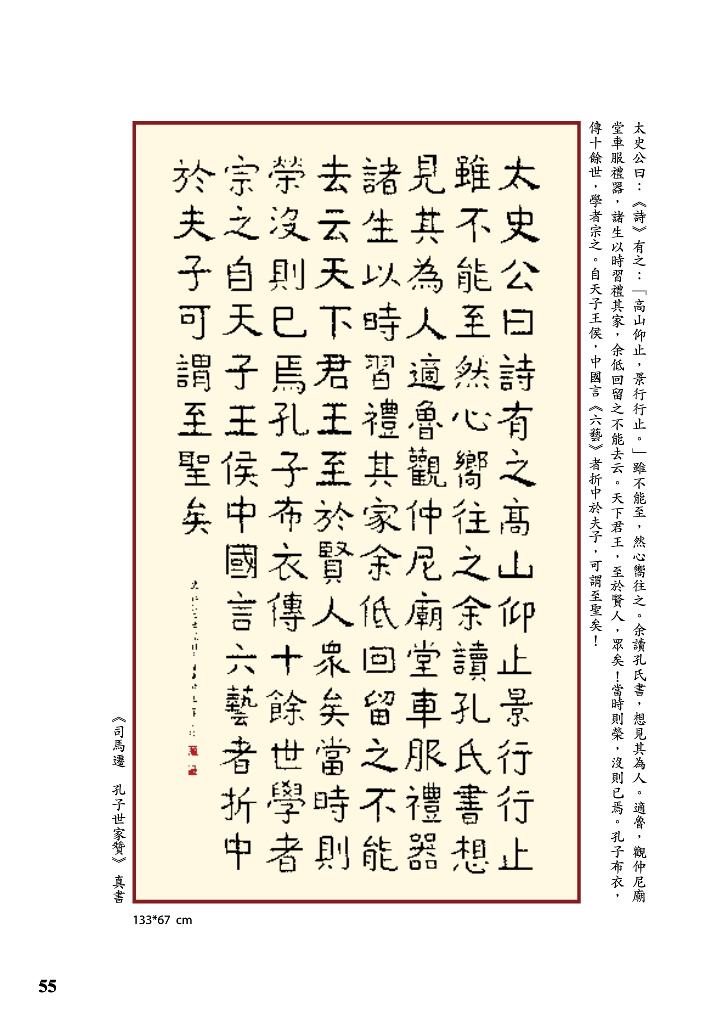 太史公曰：《詩》有之：「高山仰止，景行行止。」雖不能至，然心嚮往之。余讀孔氏書，想見其為人。適魯，觀仲尼廟
堂車服禮器，諸生以時習禮其家，余低回留之不能去云。天下君王，至於賢人，眾矣！當時則榮，沒則已焉。孔子布衣，
傳十餘世，學者宗之。自天子王侯，中國言《六藝》者折中於夫子，可謂至聖矣！
太史公曰詩有之高山仰止景行行止
雖不能至然心嚮往之余讀孔氏書想
見其為人適魯觀仲尼廟堂車服禮器
諸生以時習禮其家余低回留之不能
去云天下君王至於賢人眾矣當時則
榮沒則已焉孔子布衣傳十餘世學者
宗之自天子王侯中國言六藝者折中
於夫子可謂至聖矣
《司馬遷 孔子世家贊》真書
133*67 cm
55